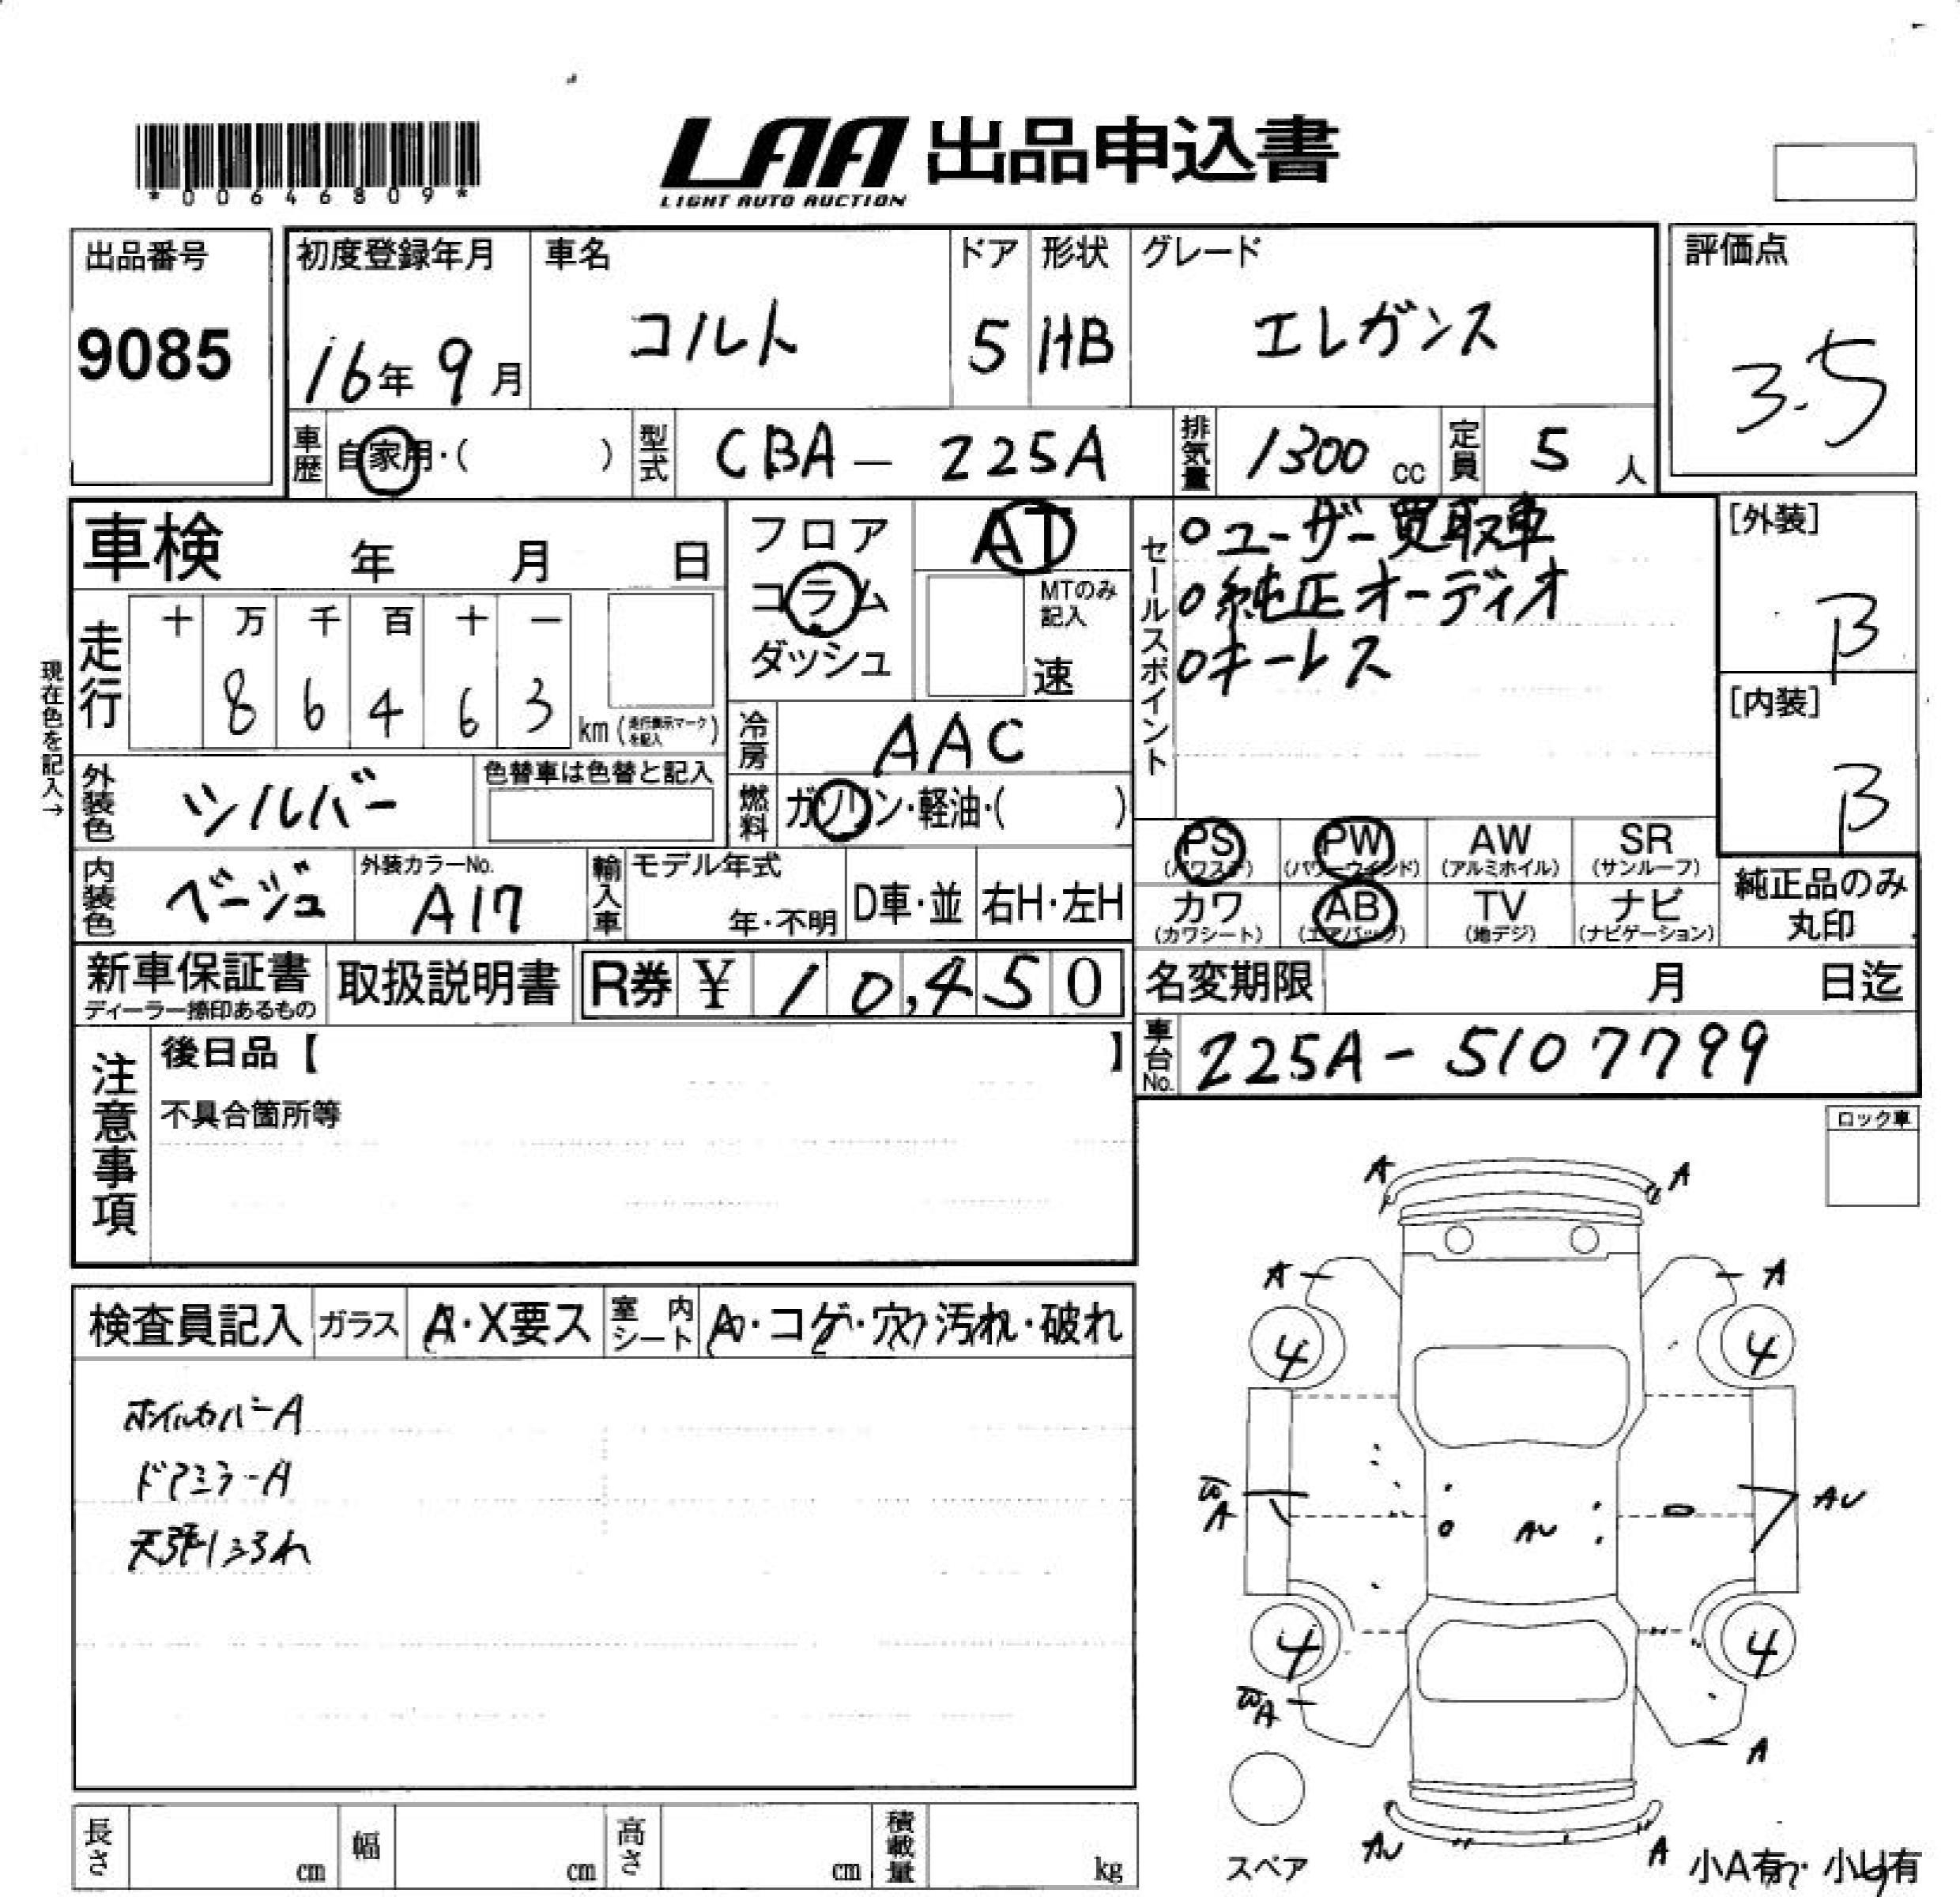 *00646809*
LAA 出品申込書
LIGHT AUTO AUCTION
出品番号
9085
初度登録年月
16年9月
車名
コルト
ドア
5
形状
HB
グレード
エレガンス
評価点
3.5
車歴
自家用・( )
型式
CBA - 225A
排気量
1300 cc
定員
5 人
車検 年 月 日
走行
十 万 千 百 十 一
8 6 4 6 3
km (走行表示マークを記入)
現在色を記入→
外装色
シルバー
色替車は色替と記入
内装色
ベージュ
外装カラーNo.
A17
フロア
コラム
ダッシュ
AT
MTのみ
記入
速
冷房
AAC
燃料
ガソリン・軽油・( )
輸入車
モデル年式
年・不明
D車・並
右H・左H
セールスポイント
○ユーザー買取車
○純正オーディオ
○キーレス
[外装]
B
[内装]
B
PS
(パワステ)
PW
(パワーウインド)
AW
(アルミホイル)
SR
(サンルーフ)
カワ
(カワシート)
AB
(エアバッグ)
TV
(地デジ)
ナビ
(ナビゲーション)
純正品のみ
丸印
新車保証書
ディーラー捺印あるもの
取扱説明書
R券 ¥ 10,450
名変期限 月 日迄
車台No.
225A - 5107799
注意事項
後日品【 】
不具合箇所等
ロック車
検査員記入
ガラス
A・X要ス
室内シート
A・コゲ・穴・汚れ・破れ
ホイルカバーA
ドアミラーA
A
A
A
A
4
4
A
AU
AU
4
4
A
A
AU
A
スペア
小A有・小U有
長さ cm
幅 cm
高さ cm
積載量 kg